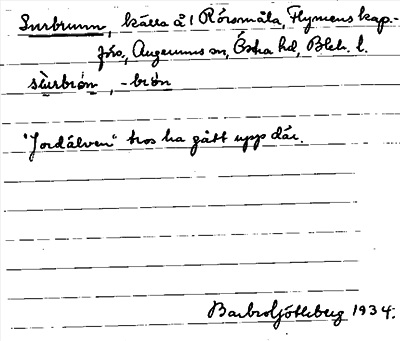 Surbrunn, källa å 1 Rörsmåla, Flymens kap-
förs, Augerums sn, Östra hd, Blek. l.
sùrbrón, -brón
"Jordälven" tros ha gått upp där.
Barbro Ljöthberg 1934.